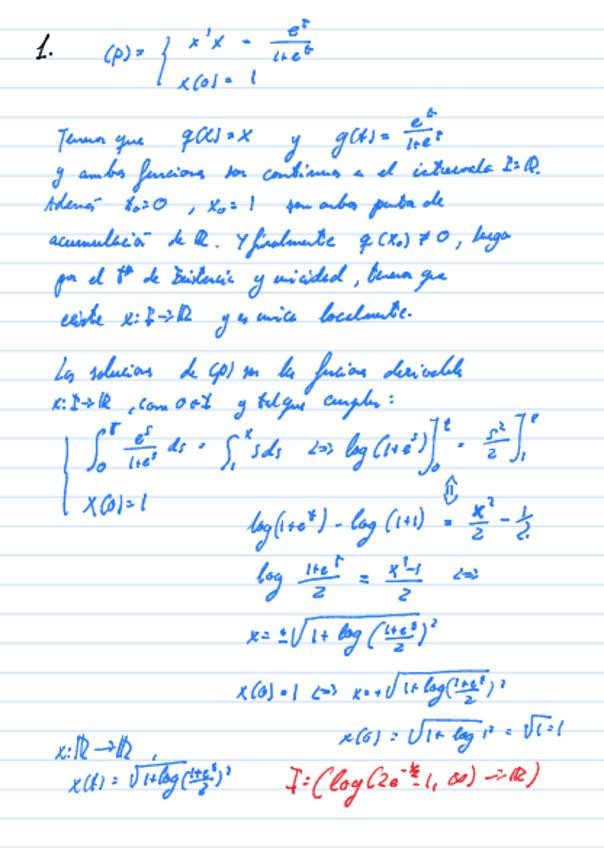 1. (P) = { x'x = e^t/(1+e^t)
x(0) = 1
Tenemos que q(x) = x y g(t) = e^t/(1+e^t)
y ambas funciones son continuas en el intervalo I = ℝ.
Además t₀=0, x₀=1 son ambos puntos de
acumulación de ℝ. Y finalmente q(x₀) ≠ 0, luego
por el tᵐᵃ de Existencia y unicidad, tenemos que
existe x: I → ℝ y es unica localmente.
Las soluciones de (P) son las funciones derivables
x: I → ℝ, con 0 ∈ I y tal que cumplen:
{ ∫₀^t e^s/(1+e^s) ds = ∫₁^x s ds ⟺ log(1+e^s)]₀^t = s²/2]₁^x
x(0)=1
⇕
log(1+e^t) - log(1+1) = x²/2 - 1/2
log (1+e^t)/2 = (x²-1)/2 ⟺
x = ±√(1 + log((1+e^t)/2)²)
x(0)=1 ⟺ x = +√(1+log((1+e^t)/2)²)
x(0) = √(1+log 1²) = √1 = 1
x: ℝ → ℝ,
x(t) = √(1+log((1+e^t)/2)²)
I = (log(2e^(-1/2) - 1, ∞) → ℝ)